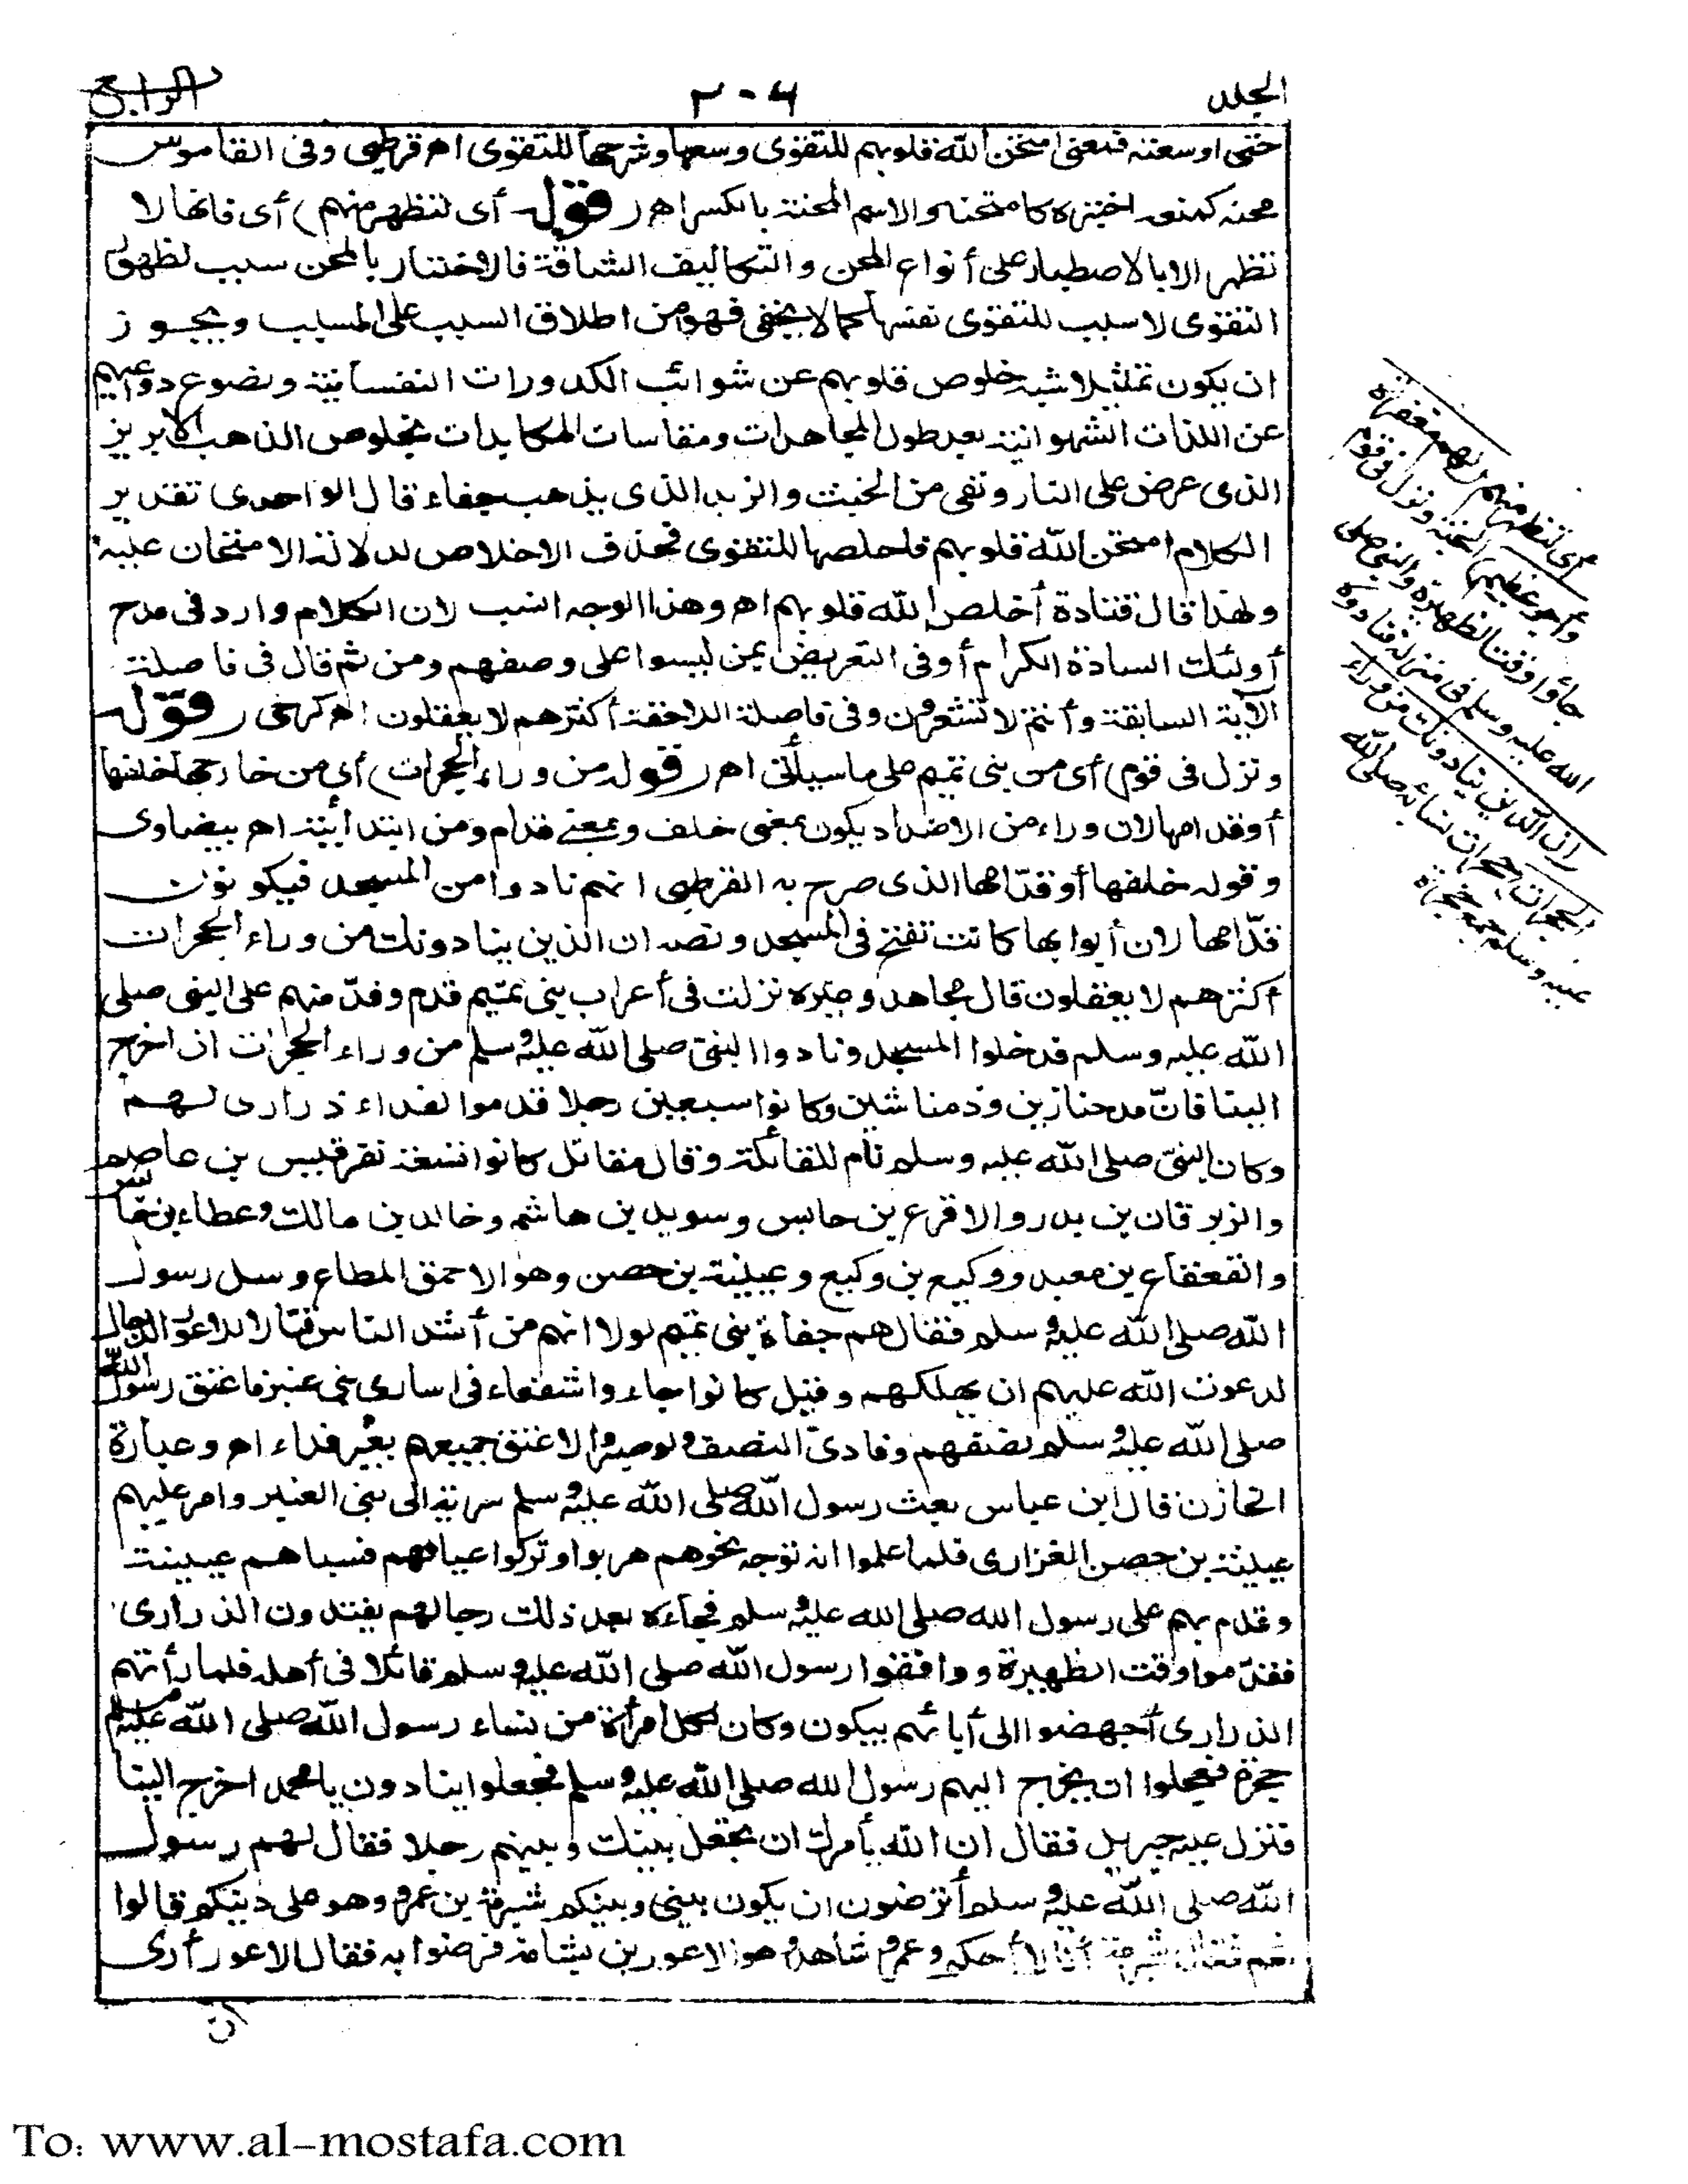 الجلد
٢٠٦
الرابع
حتى اوسعته فمعنى امتحن الله قلوبهم للتقوى وسعها وشرحها للتقوى اه قرطبى وفى القاموس
محنه كمنعه اختبره كامتحنه والاسم المحنة بالكسر اه ( قوله أى لتظهر منهم ) أى فانها لا
تظهر الا بالاصطبار على أنواع المحن والتكاليف الشاقة فالاختبار بالمحن سبب لظهور
التقوى لا سبب للتقوى نفسها كما لا يخفى فهو من اطلاق السبب على المسبب ويجوز
ان يكون تمثيلا شبه خلوص قلوبهم عن شوائب الكدورات النفسانية ونضوع دواعيهم
عن اللذات الشهوانية بعد طول المجاهدات ومقاسات المكابدات بخلوص الذهب الابريز
الذى عرض على النار ونقى من الخبث والزبد الذى يذهب جفاء قال الواحدى تقدير
الكلام امتحن الله قلوبهم فاخلصها للتقوى فحذف الاخلاص لدلالة الامتحان عليه
ولهذا قال قتادة أخلص الله قلوبهم اه وهذا الوجه انسب لان الكلام وارد فى مدح
أولئك السادة الكرام أو فى التعريض بمن ليسوا على وصفهم ومن ثم قال فى فاصلة
الآية السابقة وأنتم لا تشعرون وفى فاصلة اللاحقة أكثرهم لا يعقلون اه كرخى ( قوله
ونزل فى قوم) أى من بنى تميم على ما سيأتى اه ( قوله من وراء الحجرات) أى من خارجها خلفها
أو قدامها لان وراء من الاضداد يكون بمعنى خلف وبمعنى قدام ومن ابتدائية اه بيضاوى
وقوله خلفها أو قدّامها الذى صرح به القرطبى انهم نادوا من المسجد فيكونون
قدّامها لان أبوابها كانت تفتح فى المسجد ونصه ان الذين ينادونك من وراء الحجرات
أكثرهم لا يعقلون قال مجاهد وغيره نزلت فى أعراب بنى تميم قدم وفد منهم على النبى صلى
الله عليه وسلم فدخلوا المسجد ونادوا النبىّ صلى الله عليه وسلم من وراء الحجرات ان اخرج
الينا فانّ مدحنا زين وذمنا شين وكانوا سبعين رجلا قدموا لفداء ذرارى لهم
وكان النبىّ صلى الله عليه وسلم نام للقائلة وقال مقاتل كانوا تسعة نفر قيس بن عاصم
والزبرقان بن بدر والاقرع بن حابس وسويد بن هاشم وخالد بن مالك وعطاء بن حابس
والقعقاع بن معبد ووكيع بن وكيع وعيينة بن حصن وهو الاحمق المطاع وسل رسول
الله صلى الله عليه وسلم فقال هم جفاة بنى تميم لولا انهم من أشد الناس قتالا للاعور الدجال
لدعوت الله عليهم ان يهلكهم وقيل كانوا جاءوا شفعاء فى اسارى بنى عنبر فاعتق رسول الله
صلى الله عليه وسلم نصفهم وفادى النصف ولو صبروا لاعتق جميعهم بغير فداء اه وعبارة
الخازن قال ابن عباس بعث رسول الله صلى الله عليه وسلم سرية الى بنى العنبر وامر عليهم
عيينة بن حصن الفزارى فلما علموا انه توجه نحوهم هربوا وتركوا عيالهم فسباهم عيينة
وقدم بهم على رسول الله صلى الله عليه وسلم فجاءه بعد ذلك رجالهم يفتدون الذرارى
فقدّموا وقت الظهيرة ووافقوا رسول الله صلى الله عليه وسلم قائلا فى أهله فلما رأتهم
الذرارى أجهضوا الى أبائهم يبكون وكان لكل امرأة من نساء رسول الله صلى الله عليه وسلم
حجرة فعجلوا ان يخرج اليهم رسول الله صلى الله عليه وسلم فجعلوا ينادون يا محمد اخرج الينا
فنزل عليه جبريل فقال ان الله يأمرك ان تجعل بينك وبينهم رجلا فقال لهم رسول
الله صلى الله عليه وسلم أترضون ان يكون بينى وبينكم شبرمة بن عمرو وهو على دينكم قالوا
نعم فقال شبرمة أنا لا أحكم وعمرو شاهد وهو الاعور بن بشامة فرضوا به فقال الاعور أرى
ان
أى لتظهر منهم (لهم مغفرة
وأجر عظيم) الجنة ونزل فى قوم
جاؤا وقت الظهيرة والنبى صلى
الله عليه وسلم فى منزله فنادوه
(ان الذين ينادونك من وراء
الحجرات) حجرات نسائه صلى الله
عليه وسلم جمع حجرة
To: www.al-mostafa.com